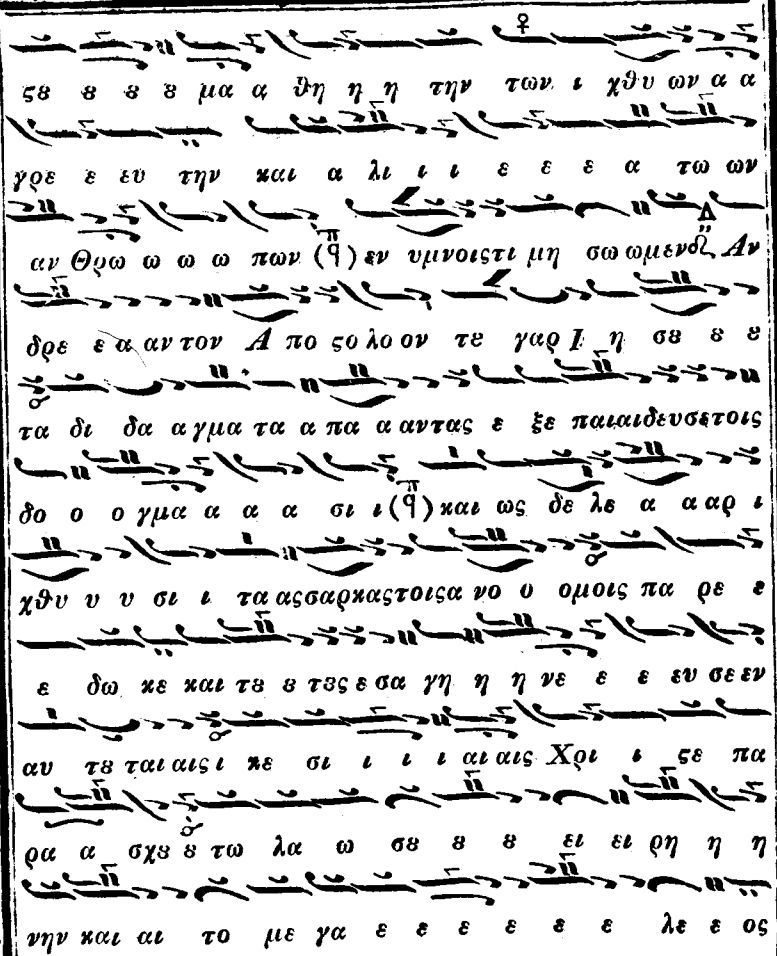 ϛȣ ȣ ȣ ȣ μα α ϑη η η την των ι χϑυ ων α α
γρε ε ευ την και α λι ι ι ε ε ε α τω ων
αν Θρω ω ω ω πων (ϥ) εν υμνοιςτι μη σω ωμεν Αν
δρε ε α αν τον Α πο ϛο λο ον τȣ γαρ Ι η σȣ ȣ ȣ
τα δι δα α γμα τα α πα α αντας ε ξε παιαιδευσετοις
δο ο ο γμα α α α σι ι (ϥ) και ως δε λε α α αρ ι
χϑυ υ υ σι ι τα αςσαρκαςτοιςα νο ο ομοις πα ρε ε
ε δω κε και τȣ ȣ τȣς ε σα γη η η νε ε ε ευ σε εν
αυ τȣ ται αις ι κε σι ι ι ι αι αις Χρι ι ϛε πα
ρα α σχȣ ȣ τω λα ω σȣ ȣ ȣ ει ει ρη η η
νην και αι το με γα ε ε ε ε ε ε λε ε ος